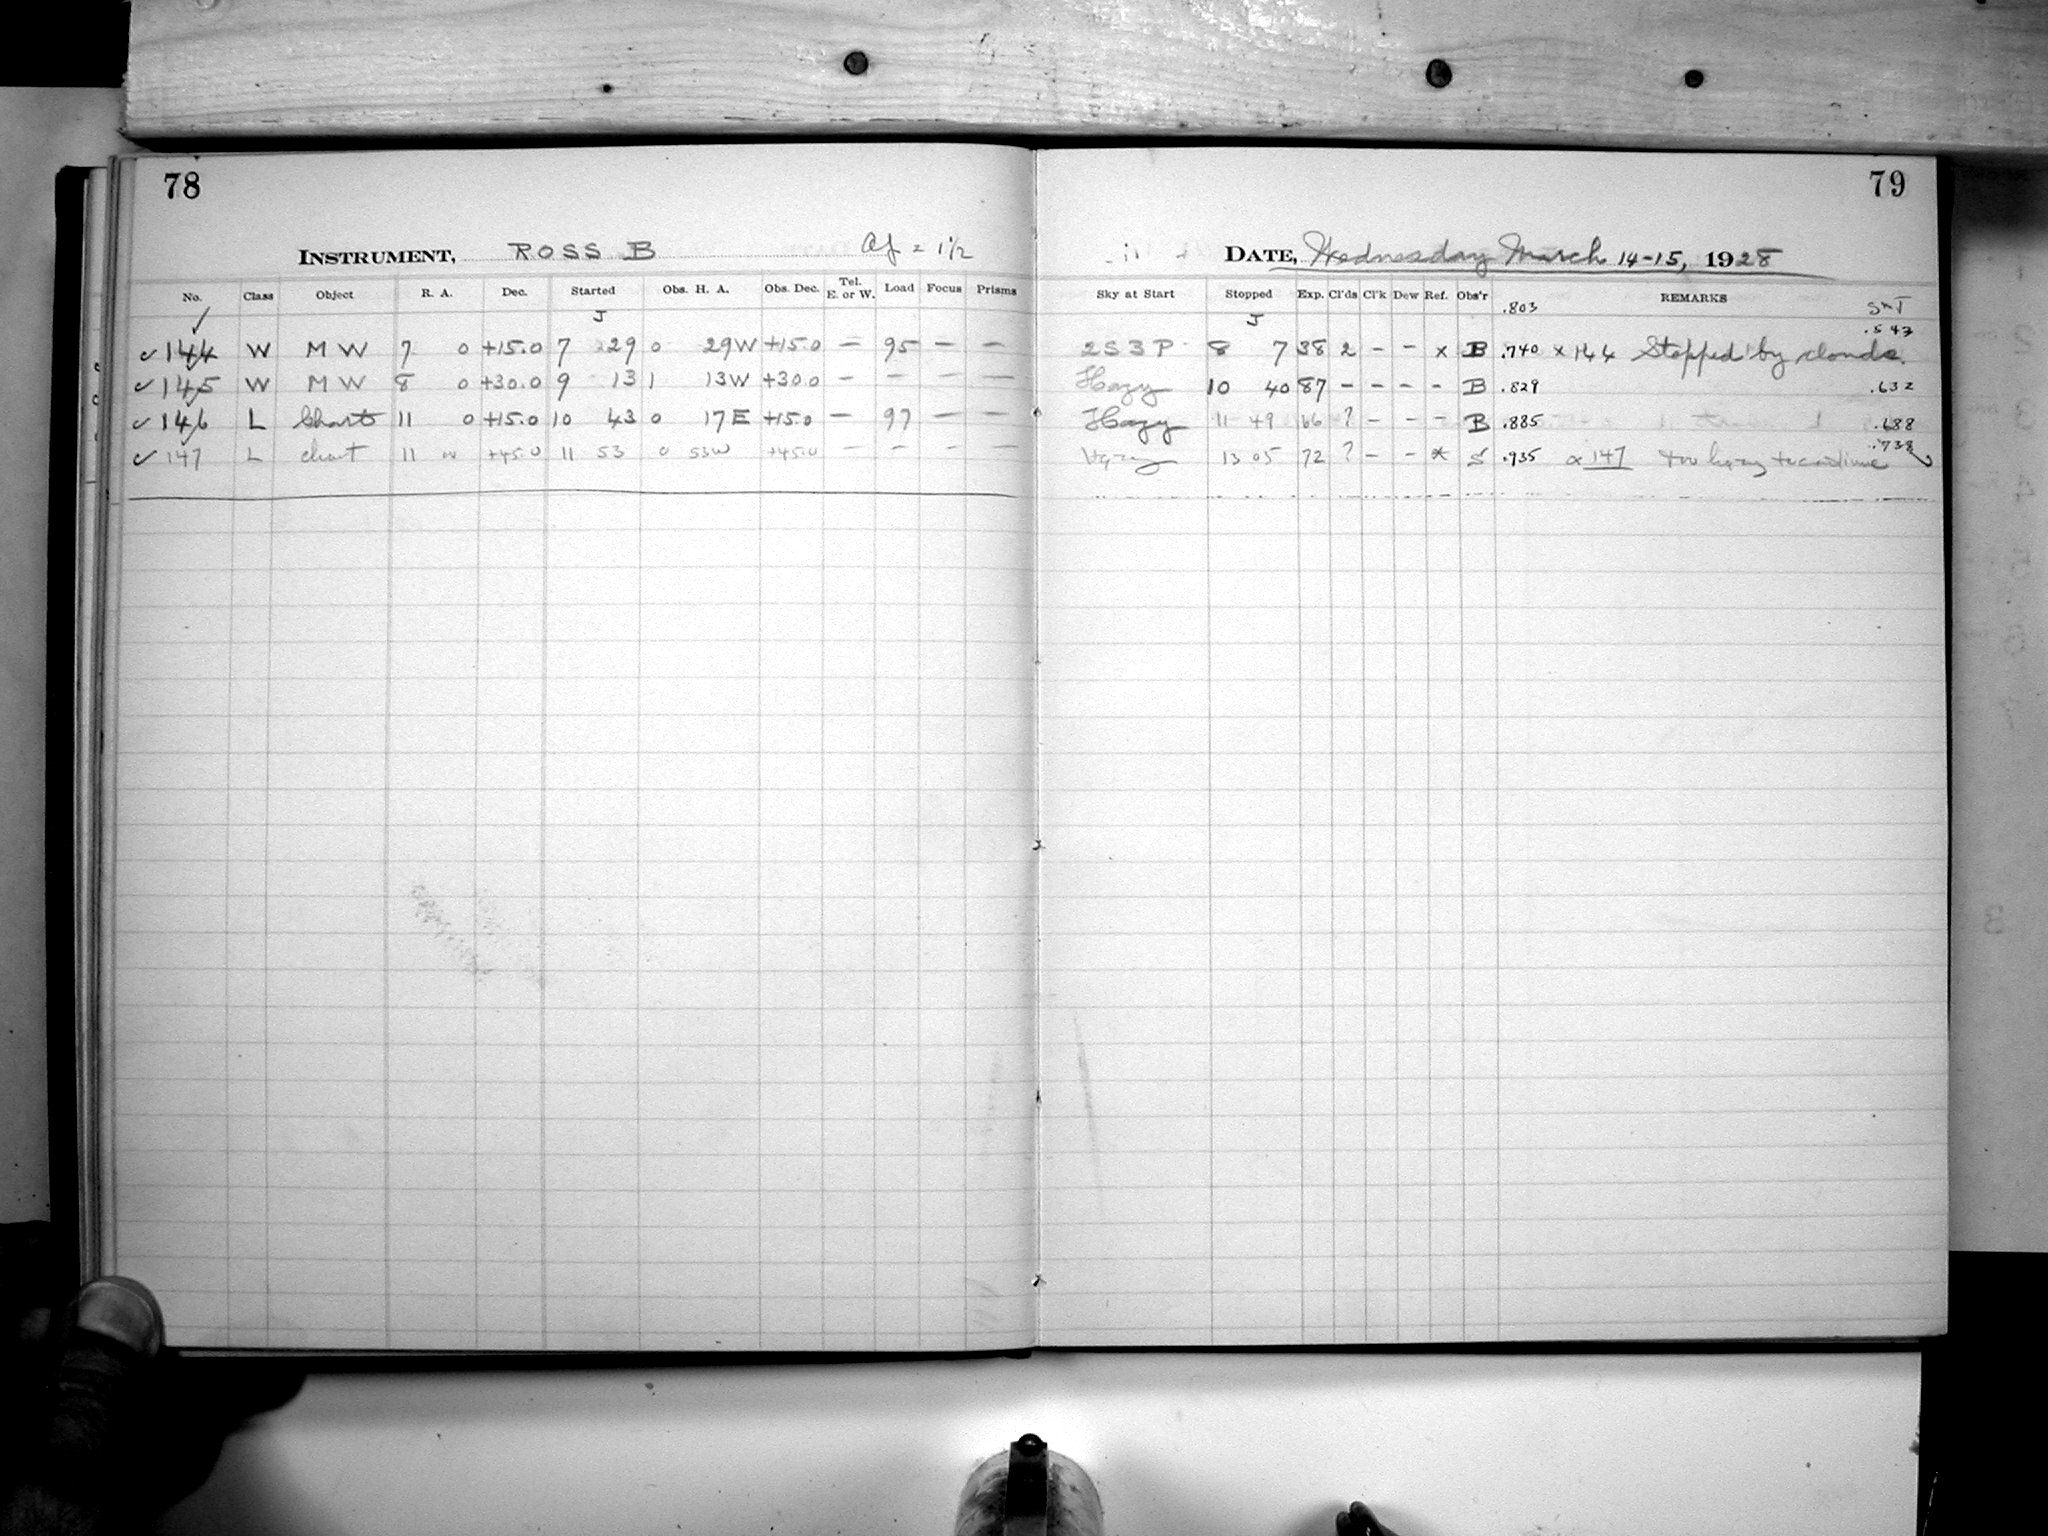 78
INSTRUMENT, ROSS B
No. Class Object R. A. Dec. Started Obs. H. A. Obs. Dec. Tel. E. or W. Load Focus Prisms
J
✓ 144 W M W 7 0 +15.0 7 29 0 29W +15.0 — 95 — —
✓ 145 W M W 8 0 +30.0 9 13 1 13W +30.0 — — — —
✓ 146 L Chart 11 0 +15.0 10 43 0 17E +15.0 — 97 — —
✓ 147 L chart 11 +45.0 11 53 0 53W +45.0 — — — —
79
DATE, Wednesday March 14-15, 1928
Sky at Start Stopped Exp. Cl'ds Cl'k Dew Ref. Obs'r REMARKS
J .803
2S 3P 8 7 38 2 - - x B .740 x 144 Stopped by clouds. .543
Hazy 10 40 87 - - - - B .829 .632
Hazy 11 49 66 ? - - - B .885 .688
Hazy 13 05 72 ? - - * S .935 147 too hazy to continue .738